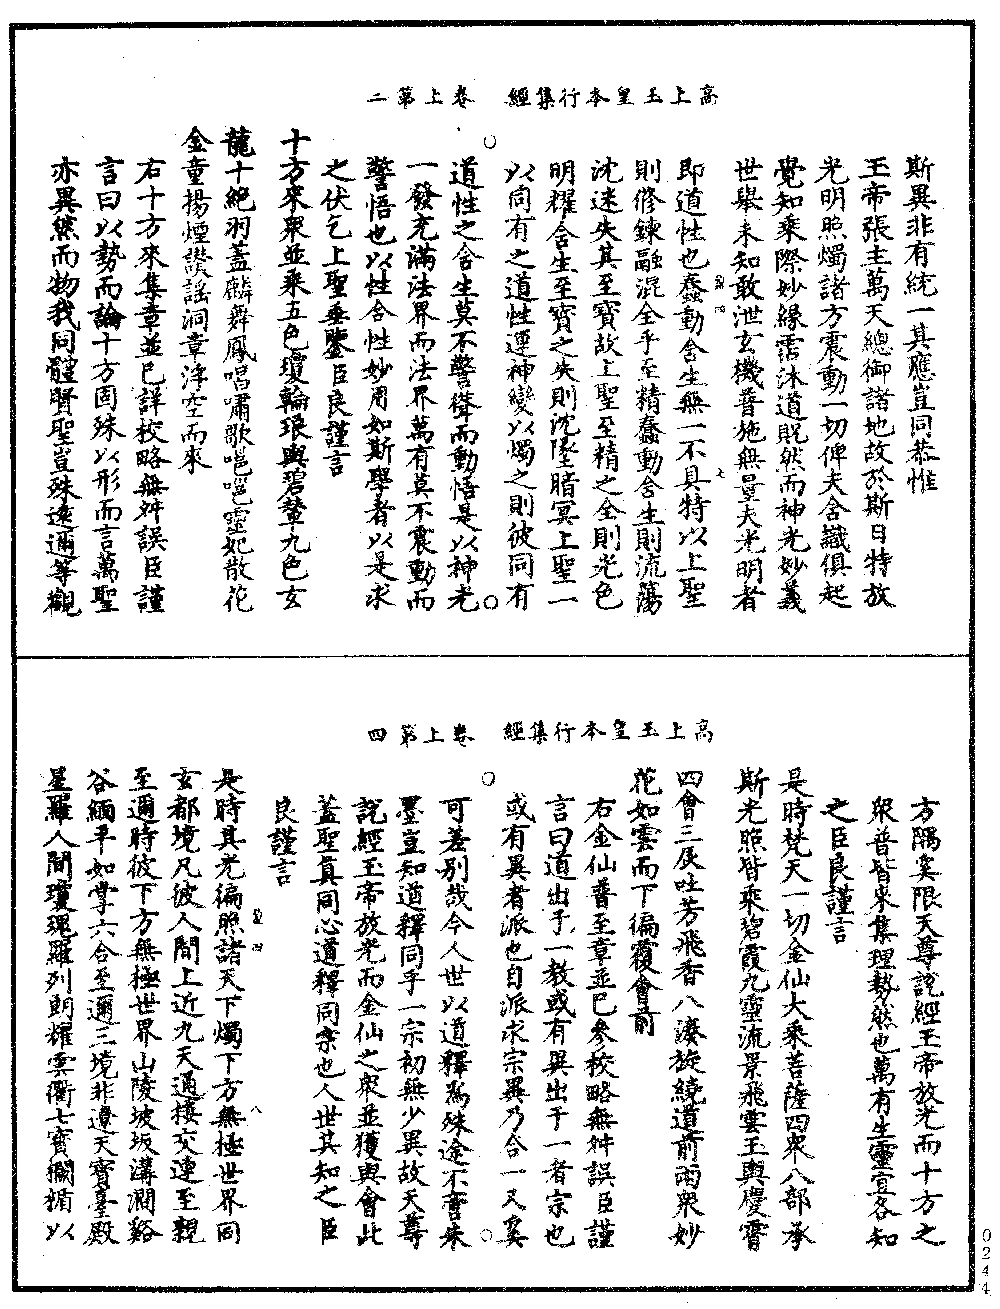 高上玉皇本行集經　卷上第二
斯異非有統一其應豈同恭惟
玉帝張主萬天總御諸地故於斯日特放
光明照燭諸方震動一切俾夫含識俱起
覺知乘際妙緣霑沐道旣然而神光妙義
世舉未知敢泄玄機普施無量夫光明者
即道性也蠢動含生無一不具特以上聖
則修鍊融混全乎至精蠢動含生則流蕩
沈迷失其至寶故上聖至精之全則光色
明耀含生至寶之失則沈墜暗冥上聖一
以同有之道性運神變以燭之則彼同有
道性之含生莫不警聳而動悟是以神光
一發充滿法界而法界萬有莫不震動而
警悟也以性含性妙用如斯學者以是求
之伏乞上聖垂鑒臣良謹言
十方來衆並乘五色瓊輪琅輿碧輦九色玄
龍十絕羽蓋麟舞鳳唱嘯歌嗈嗈靈妃散花
金童揚煙讚謠洞章浮空而來
右十方來集章並已詳校略無舛誤臣謹
言曰以勢而論十方固殊以形而言萬聖
亦異然而物我同體賢聖豈殊遠邇等觀
高上玉皇本行集經　卷上第四
方隅奚限天尊說經玉帝放光而十方之
衆普皆來集理勢然也萬有生靈宜各知
之臣良謹言
是時梵天一切金仙大乘菩薩四衆八部承
斯光照皆乘碧霞九靈流景飛雲玉輿慶霄
四會三辰吐芳飛香八湊旋繞道前雨衆妙
花如雲而下徧覆會前
右金仙普至章並已參校略無舛誤臣謹
言曰道出于一教或有異出于一者宗也
或有異者派也自派求宗異乃合一又奚
可差別哉今人世以道釋爲殊途不啻朱
墨豈知道釋同乎一宗初無少異故天尊
說經玉帝放光而金仙之衆並獲與會此
蓋聖眞同心道釋同宗也人世其知之臣
良謹言
是時其光徧照諸天下燭下方無極世界同
玄都境凡彼人間上近九天通接交連至親
至邇時彼下方無極世界山陵坡坂溝澗谿
谷緬平如掌六合至邇三境非遼天寶臺殿
星羅人間瓊瑰羅列朗耀雲衢七寶欄楯以
0244